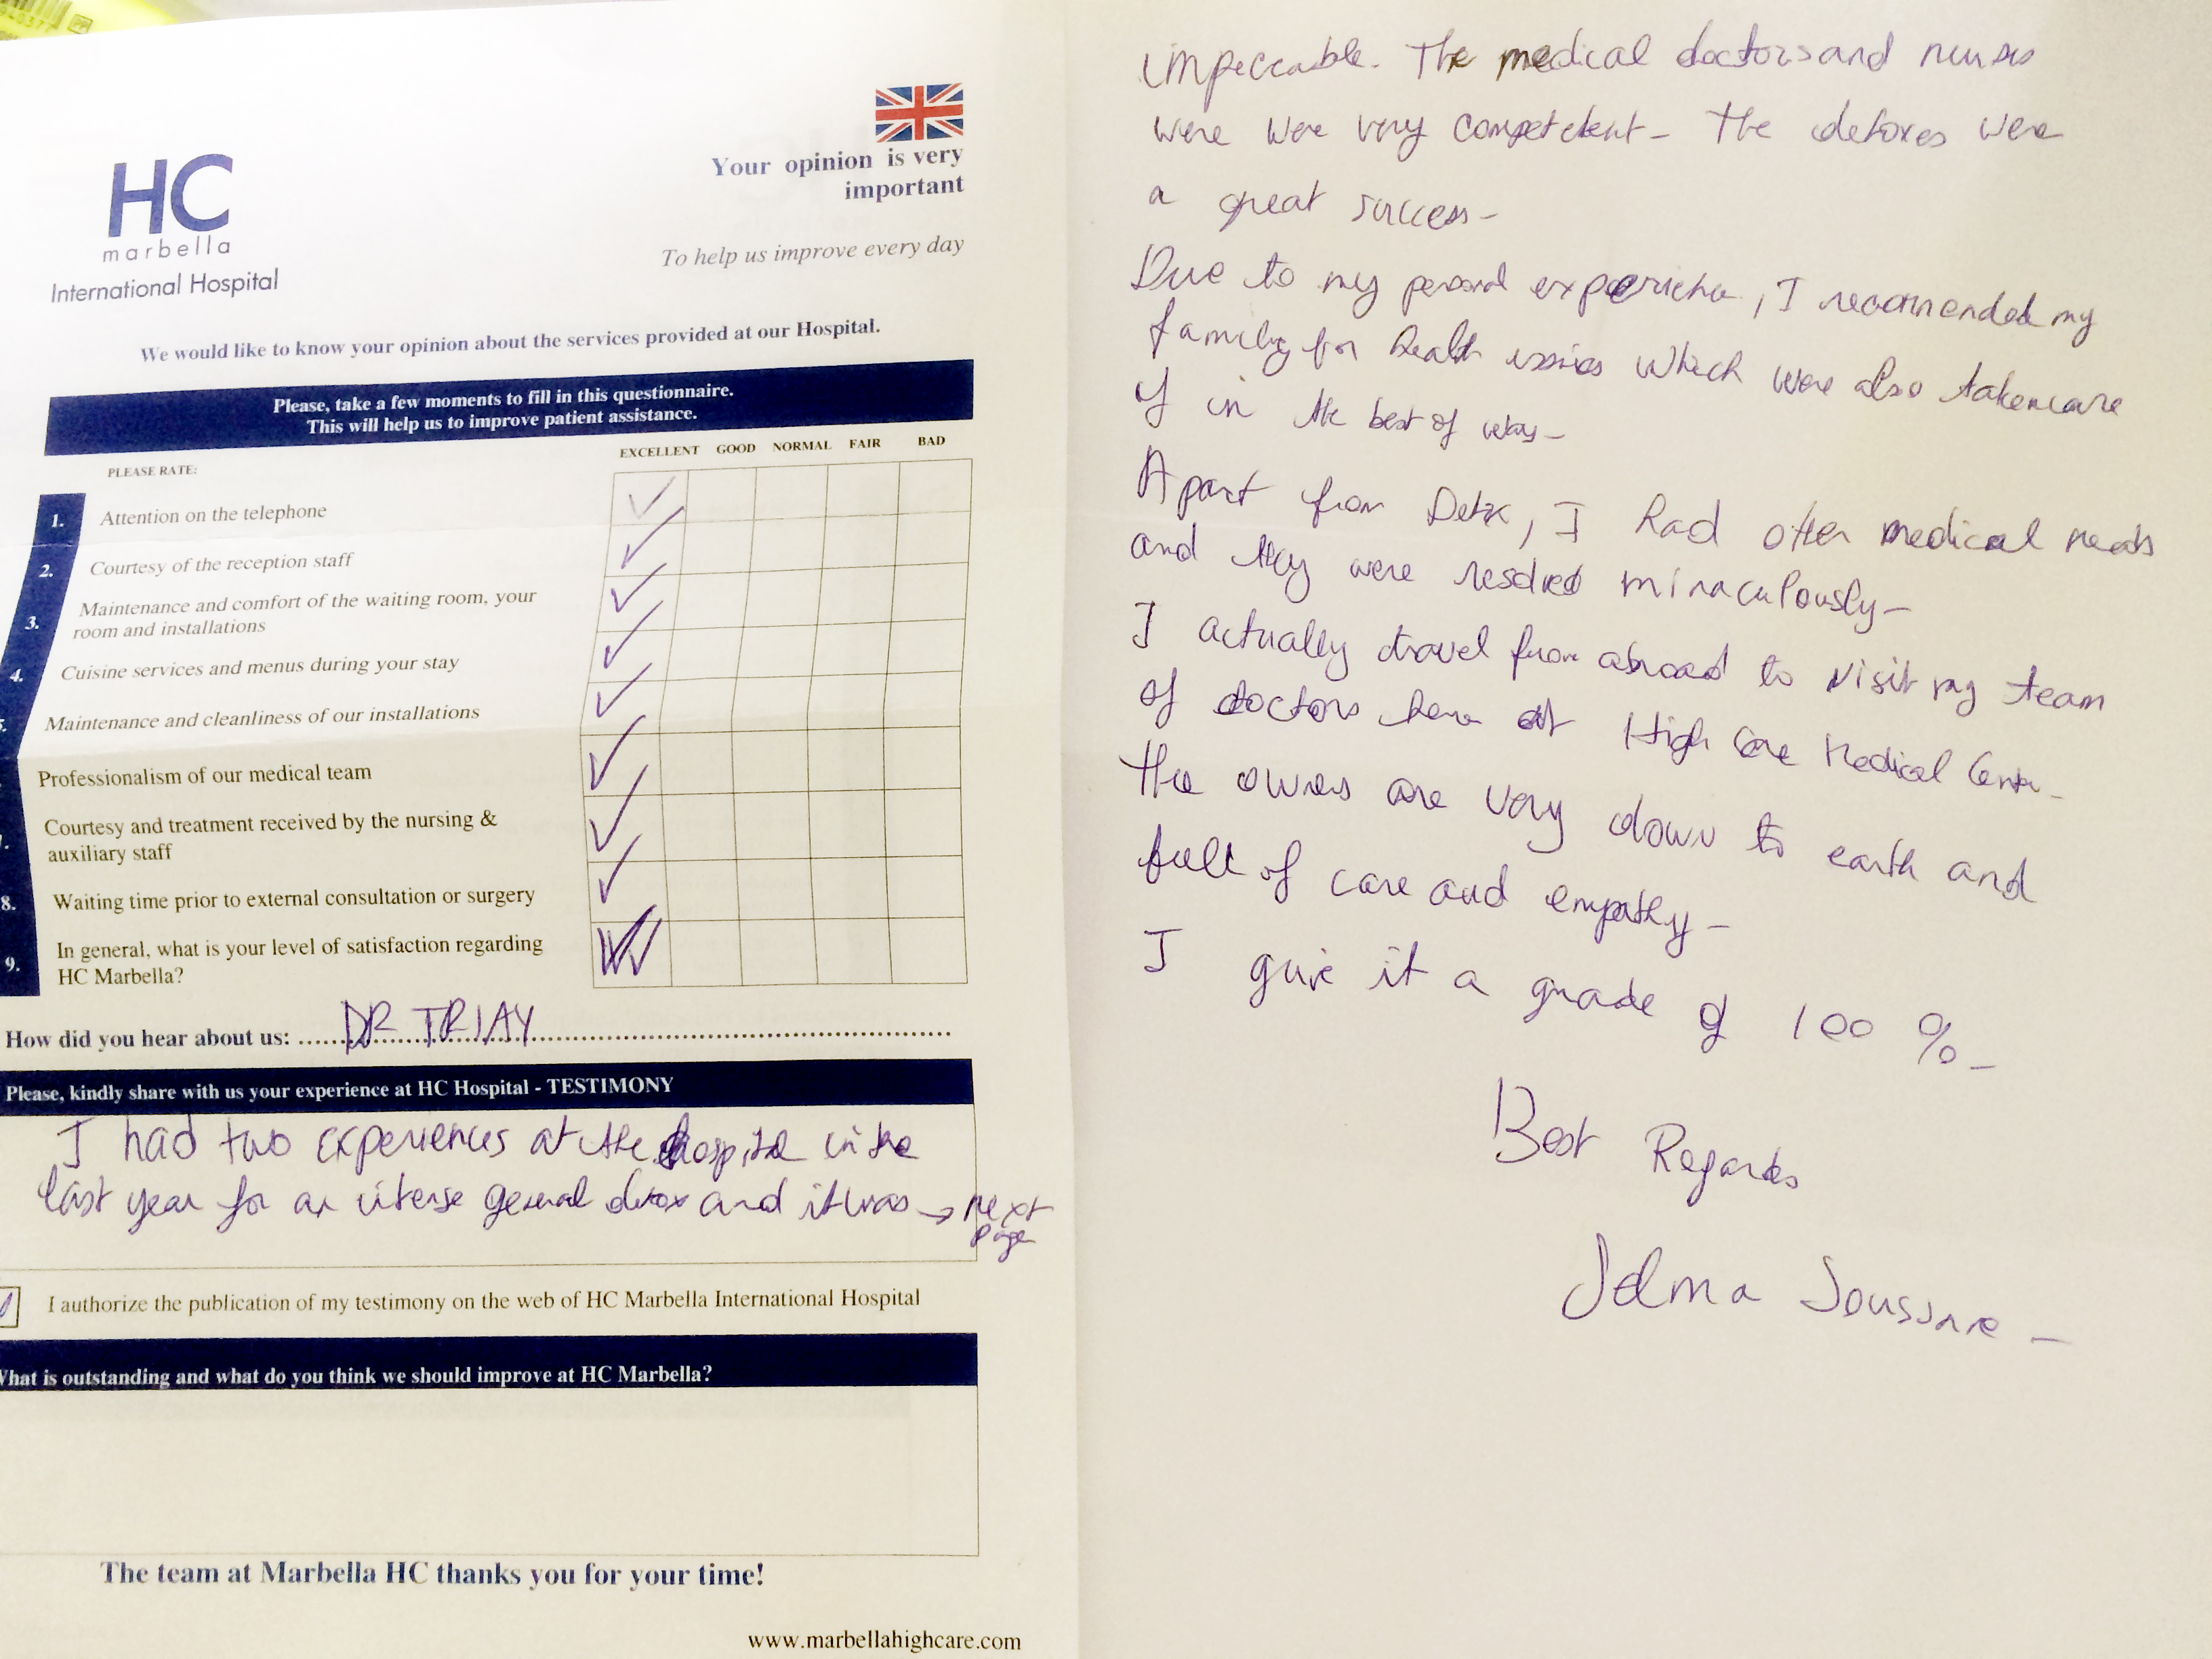 HC
marbella
International Hospital
Your opinion is very
important
To help us improve every day
We would like to know your opinion about the services provided at our Hospital.
Please, take a few moments to fill in this questionnaire.
This will help us to improve patient assistance.
PLEASE RATE:
EXCELLENT GOOD NORMAL FAIR BAD
1. Attention on the telephone
2. Courtesy of the reception staff
3. Maintenance and comfort of the waiting room, your
room and installations
4. Cuisine services and menus during your stay
Maintenance and cleanliness of our installations
Professionalism of our medical team
Courtesy and treatment received by the nursing &
auxiliary staff
8. Waiting time prior to external consultation or surgery
9. In general, what is your level of satisfaction regarding
HC Marbella?
How did you hear about us: DR TRIAY
Please, kindly share with us your experience at HC Hospital - TESTIMONY
I had two experiences at the hospital in the
last year for an intense general detox and it was → next
page
I authorize the publication of my testimony on the web of HC Marbella International Hospital
What is outstanding and what do you think we should improve at HC Marbella?
The team at Marbella HC thanks you for your time!
www.marbellahighcare.com
impeccable. The medical doctors and nurses
were were very competetent - The detoxes were
a great success -
Due to my personal experience, I recommended my
family for health issues which were also taken care
of in the best of ways -
Apart from Detox, I had other medical needs
and they were resolved miraculously -
I actually travel from abroad to visit my team
of doctors here at High Care Medical Center -
The owners are very down to earth and
full of care and empathy -
I give it a grade of 100 % -
Best Regards